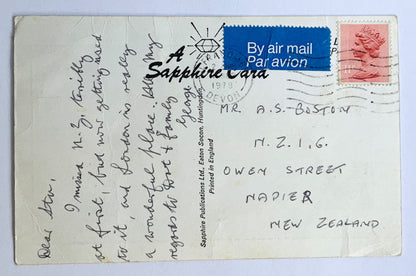 Dear Stu,
I missed N.Z. terribly
at first, but now getting used
to it, and London is really
a wonderful place. Give my
regards to Dot & family
George
A
Sapphire Card
Sapphire Publications Ltd., Eaton Socon, Huntingdon
Printed in England
1979
DEVON
By air mail
Par avion
MR. A.S. BOSTON
N.Z.I.G.
OWEN STREET
NAPIER
NEW ZEALAND